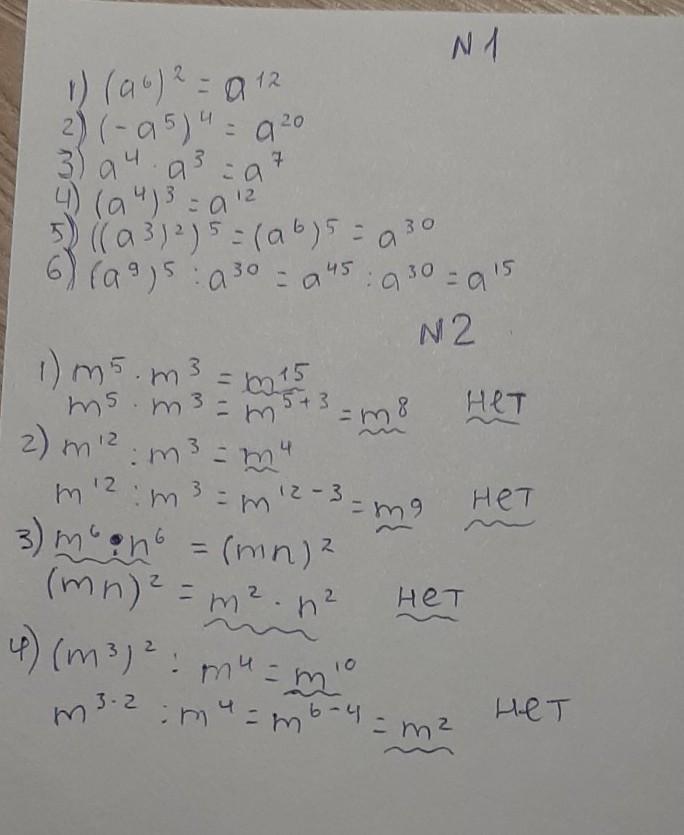 N1
1) (a⁶)² = a¹²
2) (-a⁵)⁴ = a²⁰
3) a⁴ · a³ = a⁷
4) (a⁴)³ = a¹²
5) ((a³)²)⁵ = (a⁶)⁵ = a³⁰
6) (a⁹)⁵ : a³⁰ = a⁴⁵ : a³⁰ = a¹⁵
N2
1) m⁵ · m³ = m¹⁵
m⁵ · m³ = m⁵⁺³ = m⁸ нет
2) m¹² : m³ = m⁴
m¹² : m³ = m¹²⁻³ = m⁹ нет
3) m⁶ · n⁶ = (mn)²
(mn)² = m² · n² нет
4) (m³)² : m⁴ = m¹⁰
m³·² : m⁴ = m⁶⁻⁴ = m² нет